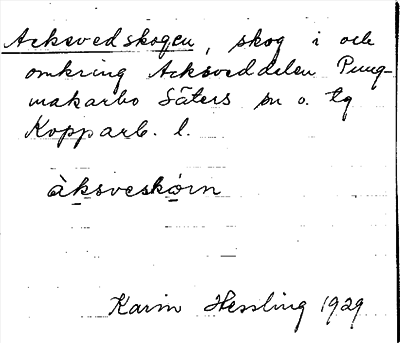 Acksvedskogen, skog i och
omkring Acksveddelen Pung-
makarbo Säters sn o. tg
Kopparb. l.
àksveskórn
Karin Hessling 1929